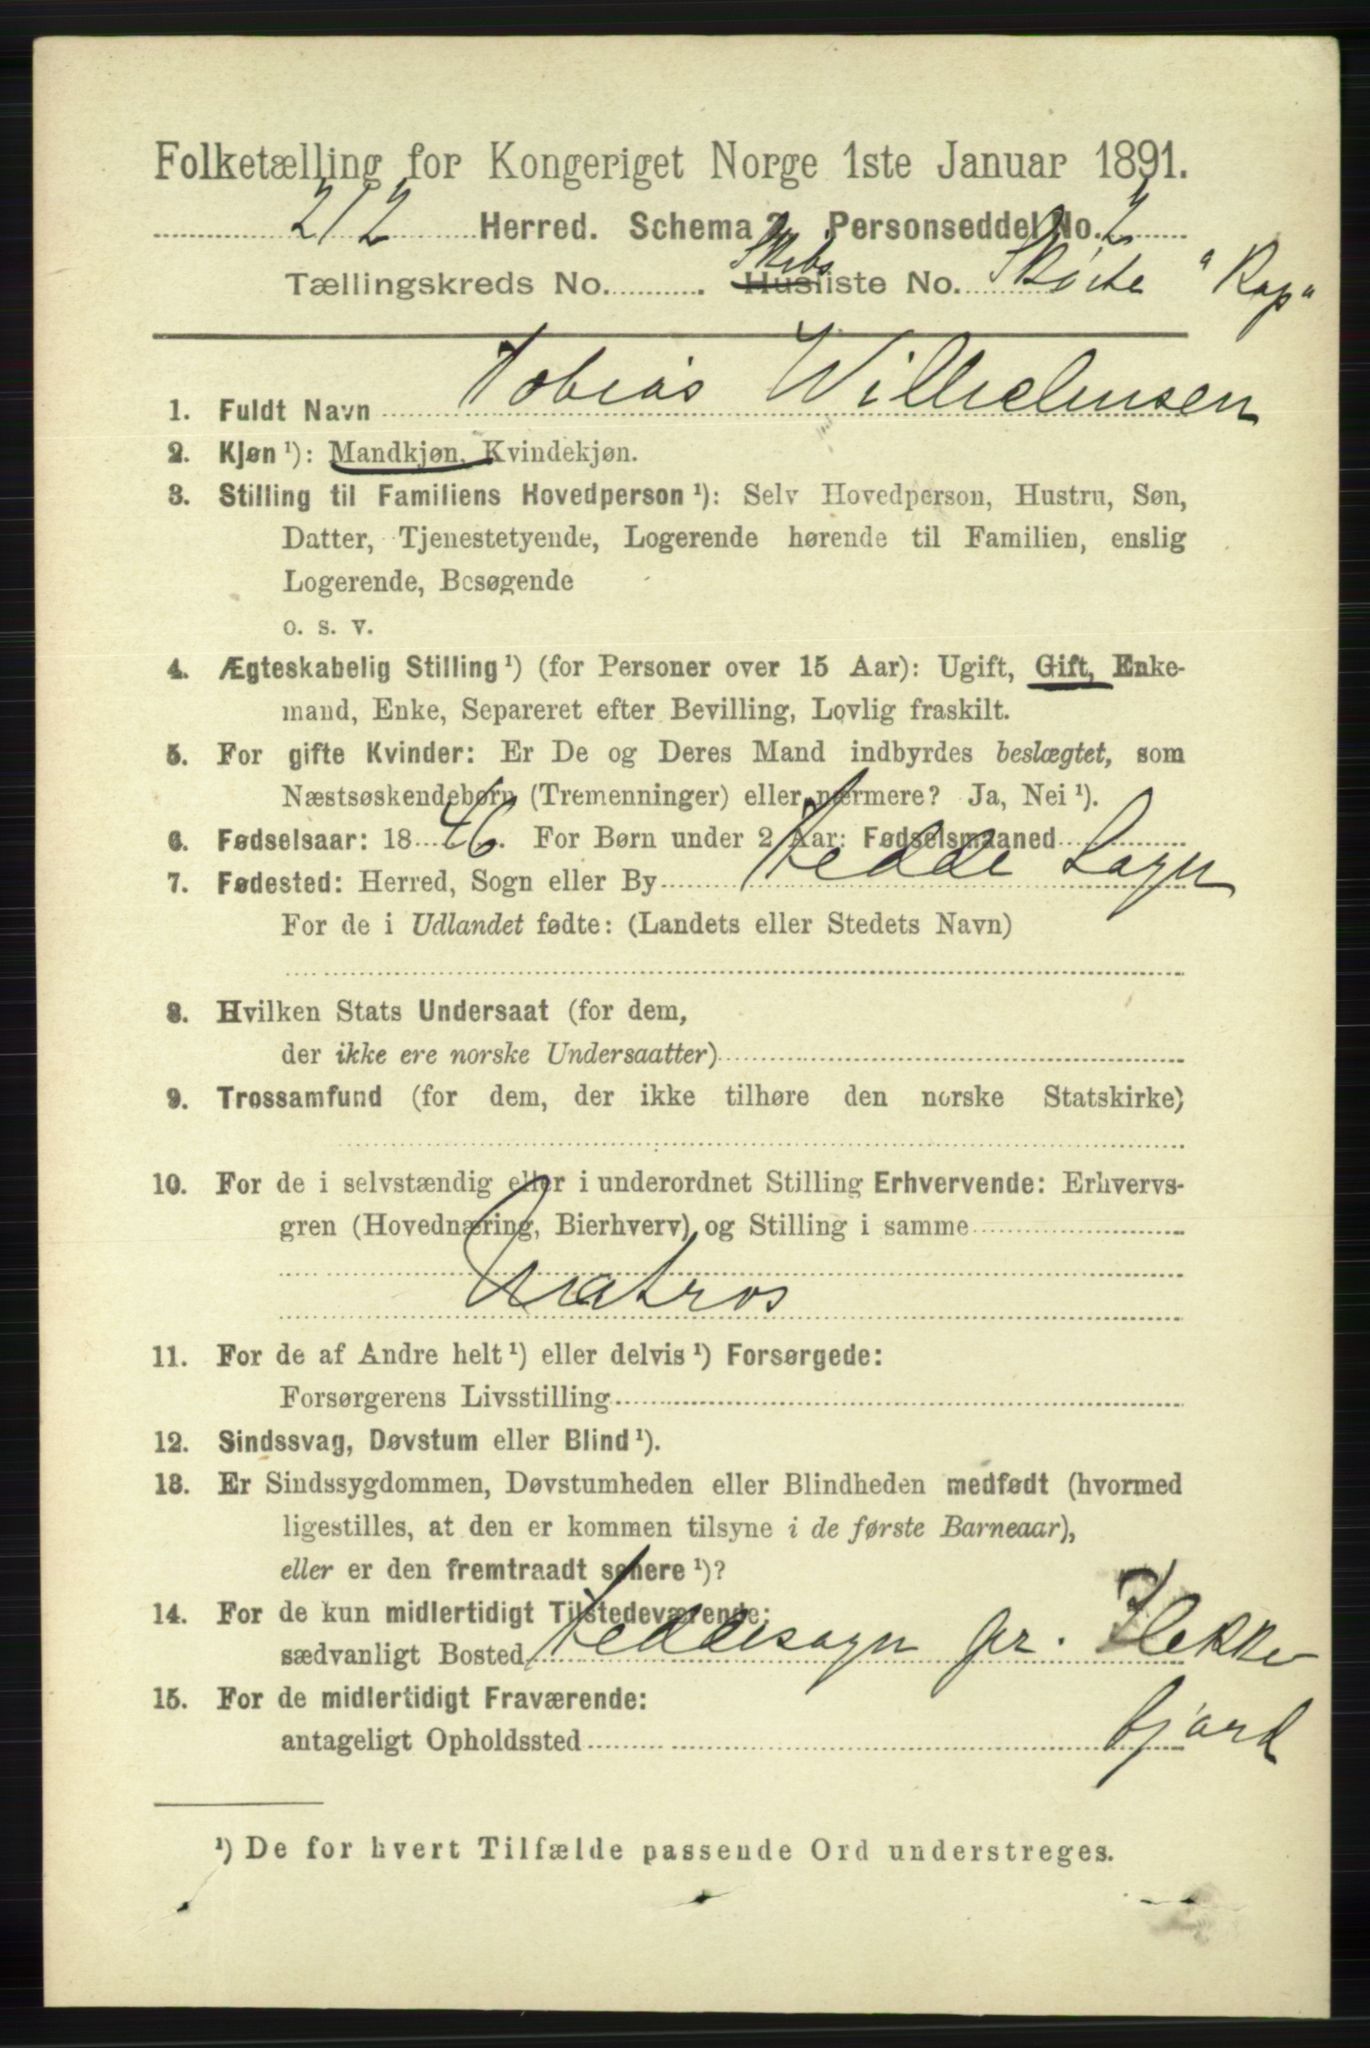 Folketælling for Kongeriget Norge 1ste Januar 1891.
212 Herred. Schema 2. Personseddel No. 2
Tællingskreds No. . Skibs Husliste No. Skøite "Rap"
1. Fuldt Navn Tobias Wilhelmsen
2. Kjøn ¹): Mandkjøn, Kvindekjøn.
3. Stilling til Familiens Hovedperson ¹): Selv Hovedperson, Hustru, Søn,
Datter, Tjenestetyende, Logerende hørende til Familien, enslig
Logerende, Besøgende
o. s. v.
4. Ægteskabelig Stilling ¹) (for Personer over 15 Aar): Ugift, Gift, Enke-
mand, Enke, Separeret efter Bevilling, Lovlig fraskilt.
5. For gifte Kvinder: Er De og Deres Mand indbyrdes beslægtet, som
Næstsøskendebørn (Tremenninger) eller nærmere? Ja, Nei ¹).
6. Fødselsaar: 1846. For Børn under 2 Aar: Fødselsmaaned
7. Fødested: Herred, Sogn eller By Hedde Sogn
For de i Udlandet fødte: (Landets eller Stedets Navn)
8. Hvilken Stats Undersaat (for dem,
der ikke ere norske Undersaatter)
9. Trossamfund (for dem, der ikke tilhøre den norske Statskirke)
10. For de i selvstændig eller i underordnet Stilling Erhvervende: Erhvervs-
gren (Hovednæring, Bierhverv) og Stilling i samme
Matros
11. For de af Andre helt ¹) eller delvis ¹) Forsørgede:
Forsørgerens Livsstilling
12. Sindssvag, Døvstum eller Blind ¹).
13. Er Sindssygdommen, Døvstumheden eller Blindheden medfødt (hvormed
ligestilles, at den er kommen tilsyne i de første Barneaar),
eller er den fremtraadt senere ¹)?
14. For de kun midlertidigt Tilstedeværende:
sædvanligt Bosted Heddesogn pr. Flekke
fjord
15. For de midlertidigt Fraværende:
antageligt Opholdssted
¹) De for hvert Tilfælde passende Ord understreges.